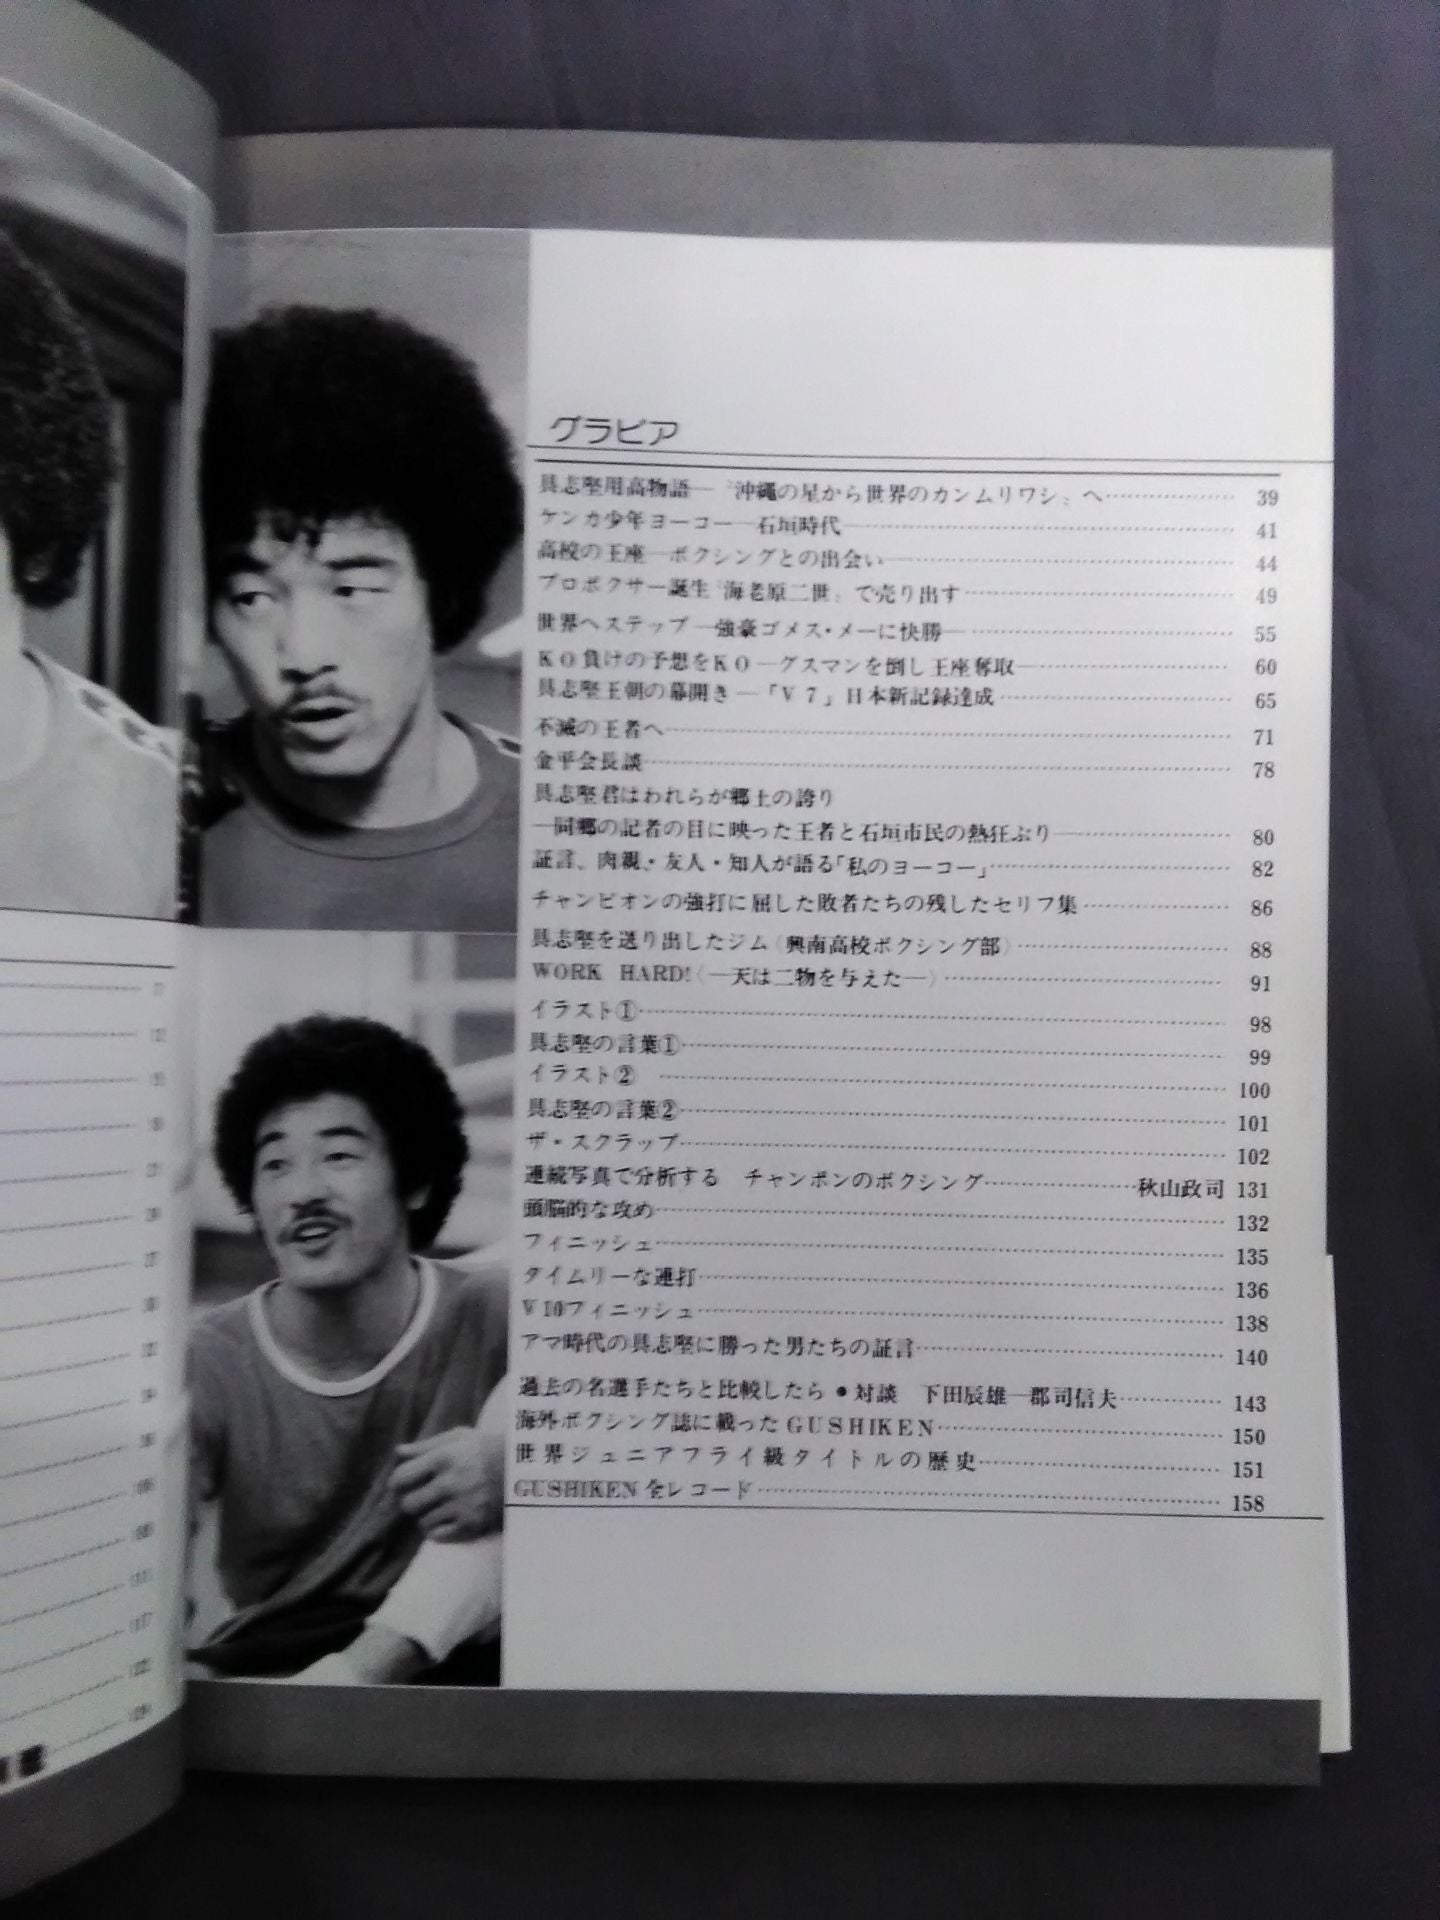 グラビア
具志堅用高物語―〝沖縄の星から世界のカンムリワシ〟へ 39
ケンカ少年ヨーコー―石垣時代― 41
高校の王座―ボクシングとの出会い― 44
プロボクサー誕生〝海老原二世〟で売り出す 49
世界へステップ―強豪ゴメス・メーに快勝― 55
KO負けの予想をKO―グスマンを倒し王座奪取― 60
具志堅王朝の幕開き―「V7」日本新記録達成 65
不滅の王者へ 71
金平会長談 78
具志堅君はわれらが郷土の誇り
―同郷の記者の目に映った王者と石垣市民の熱狂ぶり― 80
証言、肉親・友人・知人が語る「私のヨーコー」 82
チャンピオンの強打に屈した敗者たちの残したセリフ集 86
具志堅を送り出したジム〈興南高校ボクシング部〉 88
WORK HARD!〈―天は二物を与えた―〉 91
イラスト① 98
具志堅の言葉① 99
イラスト② 100
具志堅の言葉② 101
ザ・スクラップ 102
連続写真で分析する チャンポンのボクシング 秋山政司 131
頭脳的な攻め 132
フィニッシュ 135
タイムリーな連打 136
V10フィニッシュ 138
アマ時代の具志堅に勝った男たちの証言 140
過去の名選手たちと比較したら●対談 下田辰雄―郡司信夫 143
海外ボクシング誌に載ったGUSHIKEN 150
世界ジュニアフライ級タイトルの歴史 151
GUSHIKEN全レコード 158